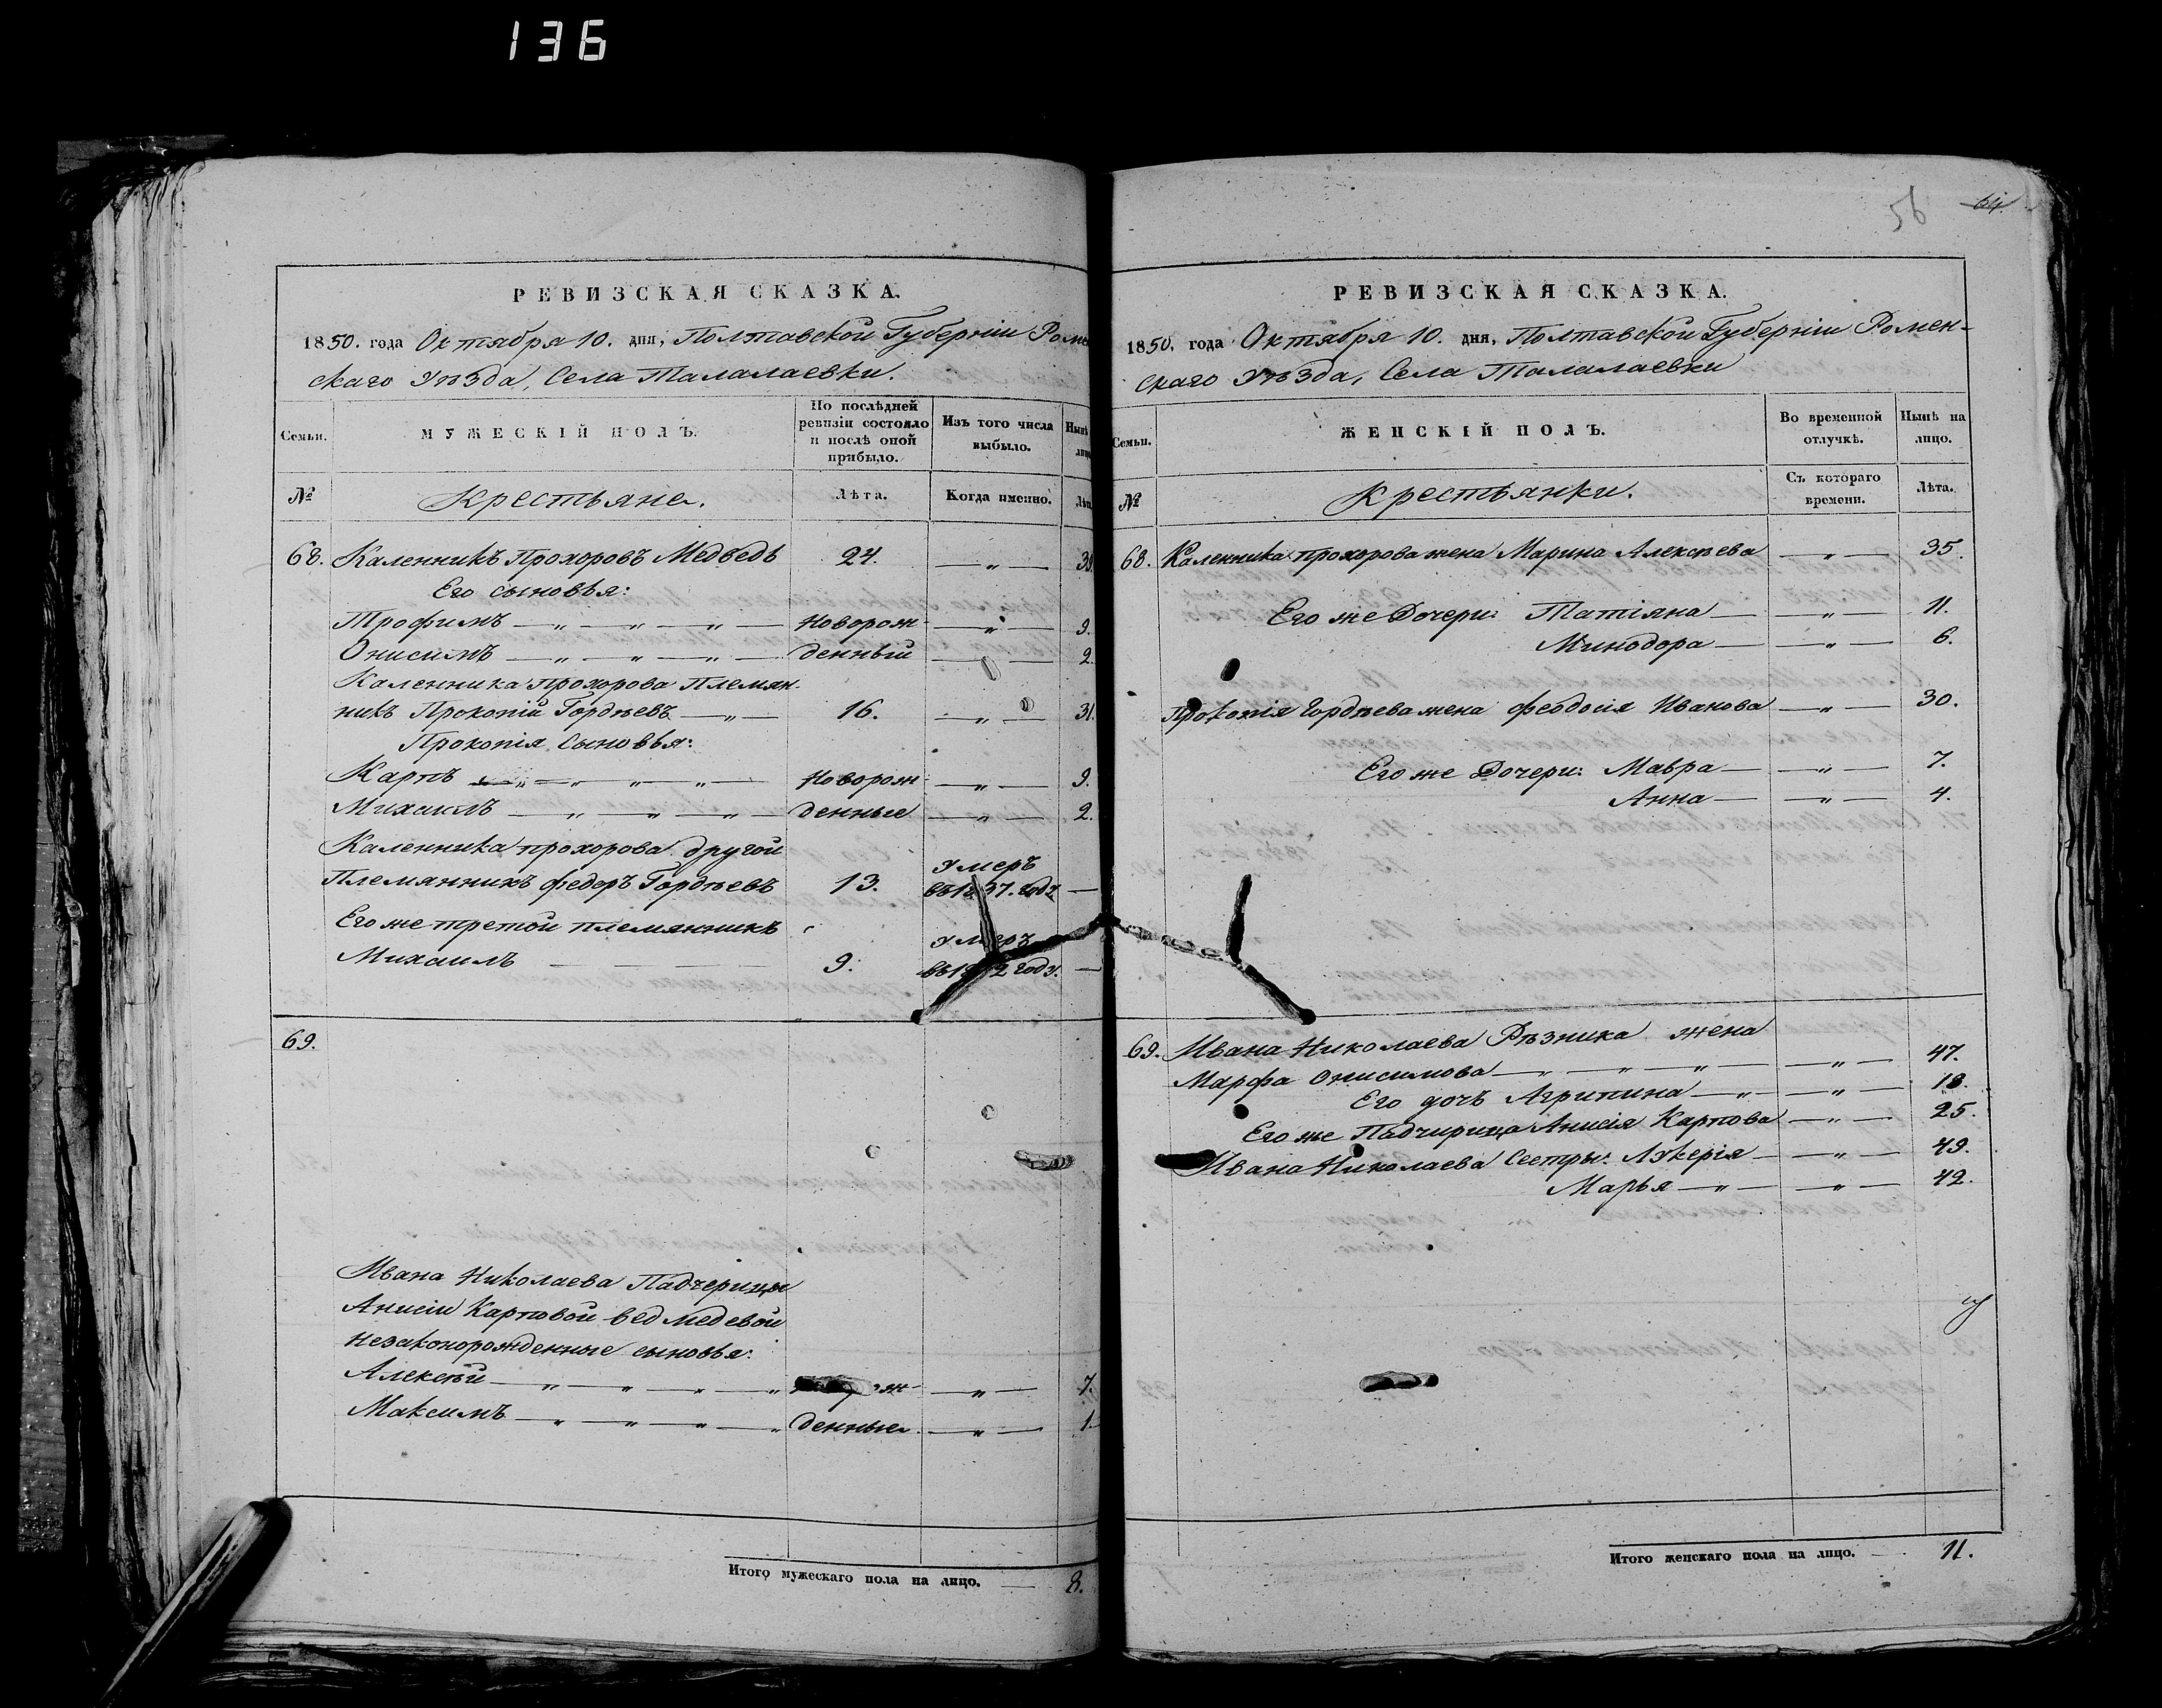 136
56 64
РЕВИЗСКАЯ СКАЗКА.
1850. года Октября 10. дня, Полтавской Губерніи Роме
скаго Уѣзда, Села Талалаевки.
Семьи.
МУЖЕСКІЙ ПОЛЪ.
По послѣдней ревизіи состояло и послѣ оной прибыло.
Изъ того числа выбыло.
Нынѣ
лицо
№
Крестьяне.
Лѣта.
Когда именно.
Лѣта
68. Каленникъ Прохоровъ Медвѣдь 24. — „ — 39.
Его сыновья:
Трофимъ — „ — „ — „ — Новорож- — „ — 9.
Онисимъ — „ — „ — „ — денный — „ — 2.
Каленника Прохорова Племян-
никъ Прокопій Гордѣевъ — „ — 16. — „ — 31.
Прокопія Сыновья:
Карпъ — „ — „ — „ — Новорож- — „ — 9.
Михаилъ — „ — „ — „ — денные — „ — 2.
Каленника прохорова другой
Племянникъ федоръ Гордѣевъ 13. умеръ въ 1837. году —
Его же третой племянникъ
Михаилъ — 9. умеръ въ году. —
69.
Ивана Николаева Падчерицы
Анисіи Карповой Ведмедевой
незаконорожденные сыновья:
Алексѣй — „ — „ — „ — „ — „ — 7.
Максимъ — „ — „ — „ — „ денные — „ — 1.
Итого мужескаго пола на лицо. — 8.
РЕВИЗСКАЯ СКАЗКА.
1850. года Октября 10. дня, Полтавской Губерніи Ромен-
скаго Уѣзда, Села Талалаевки
Семьи.
ЖЕНСКІЙ ПОЛЪ.
Во временной отлучкѣ.
Нынѣ на лицо.
№
Крестьянки.
Съ котораго времени.
Лѣта.
68. Каленника прохорова жена Марина Алексѣева — „ — 35.
Его же Дочери: Татіяна — — „ — 11.
Минодора — — „ — 6.
Прокопія Гордѣева жена феодосія Иванова — „ — 30.
Его же Дочери: Мавра — — „ — 7.
Анна — — „ — 4.
69. Ивана Николаева Рѣзника жена
Марфа Онисимова — „ — „ — „ — — „ — 47.
Его дочь Агрипина — „ — — „ — 18.
Его же Падчирица Анисія Карпова — „ — 25.
Ивана Николаева Сестры: Лукерія — — „ — 49.
Марья — „ — — „ — 42.
Итого женскаго пола на лицо. — 11.